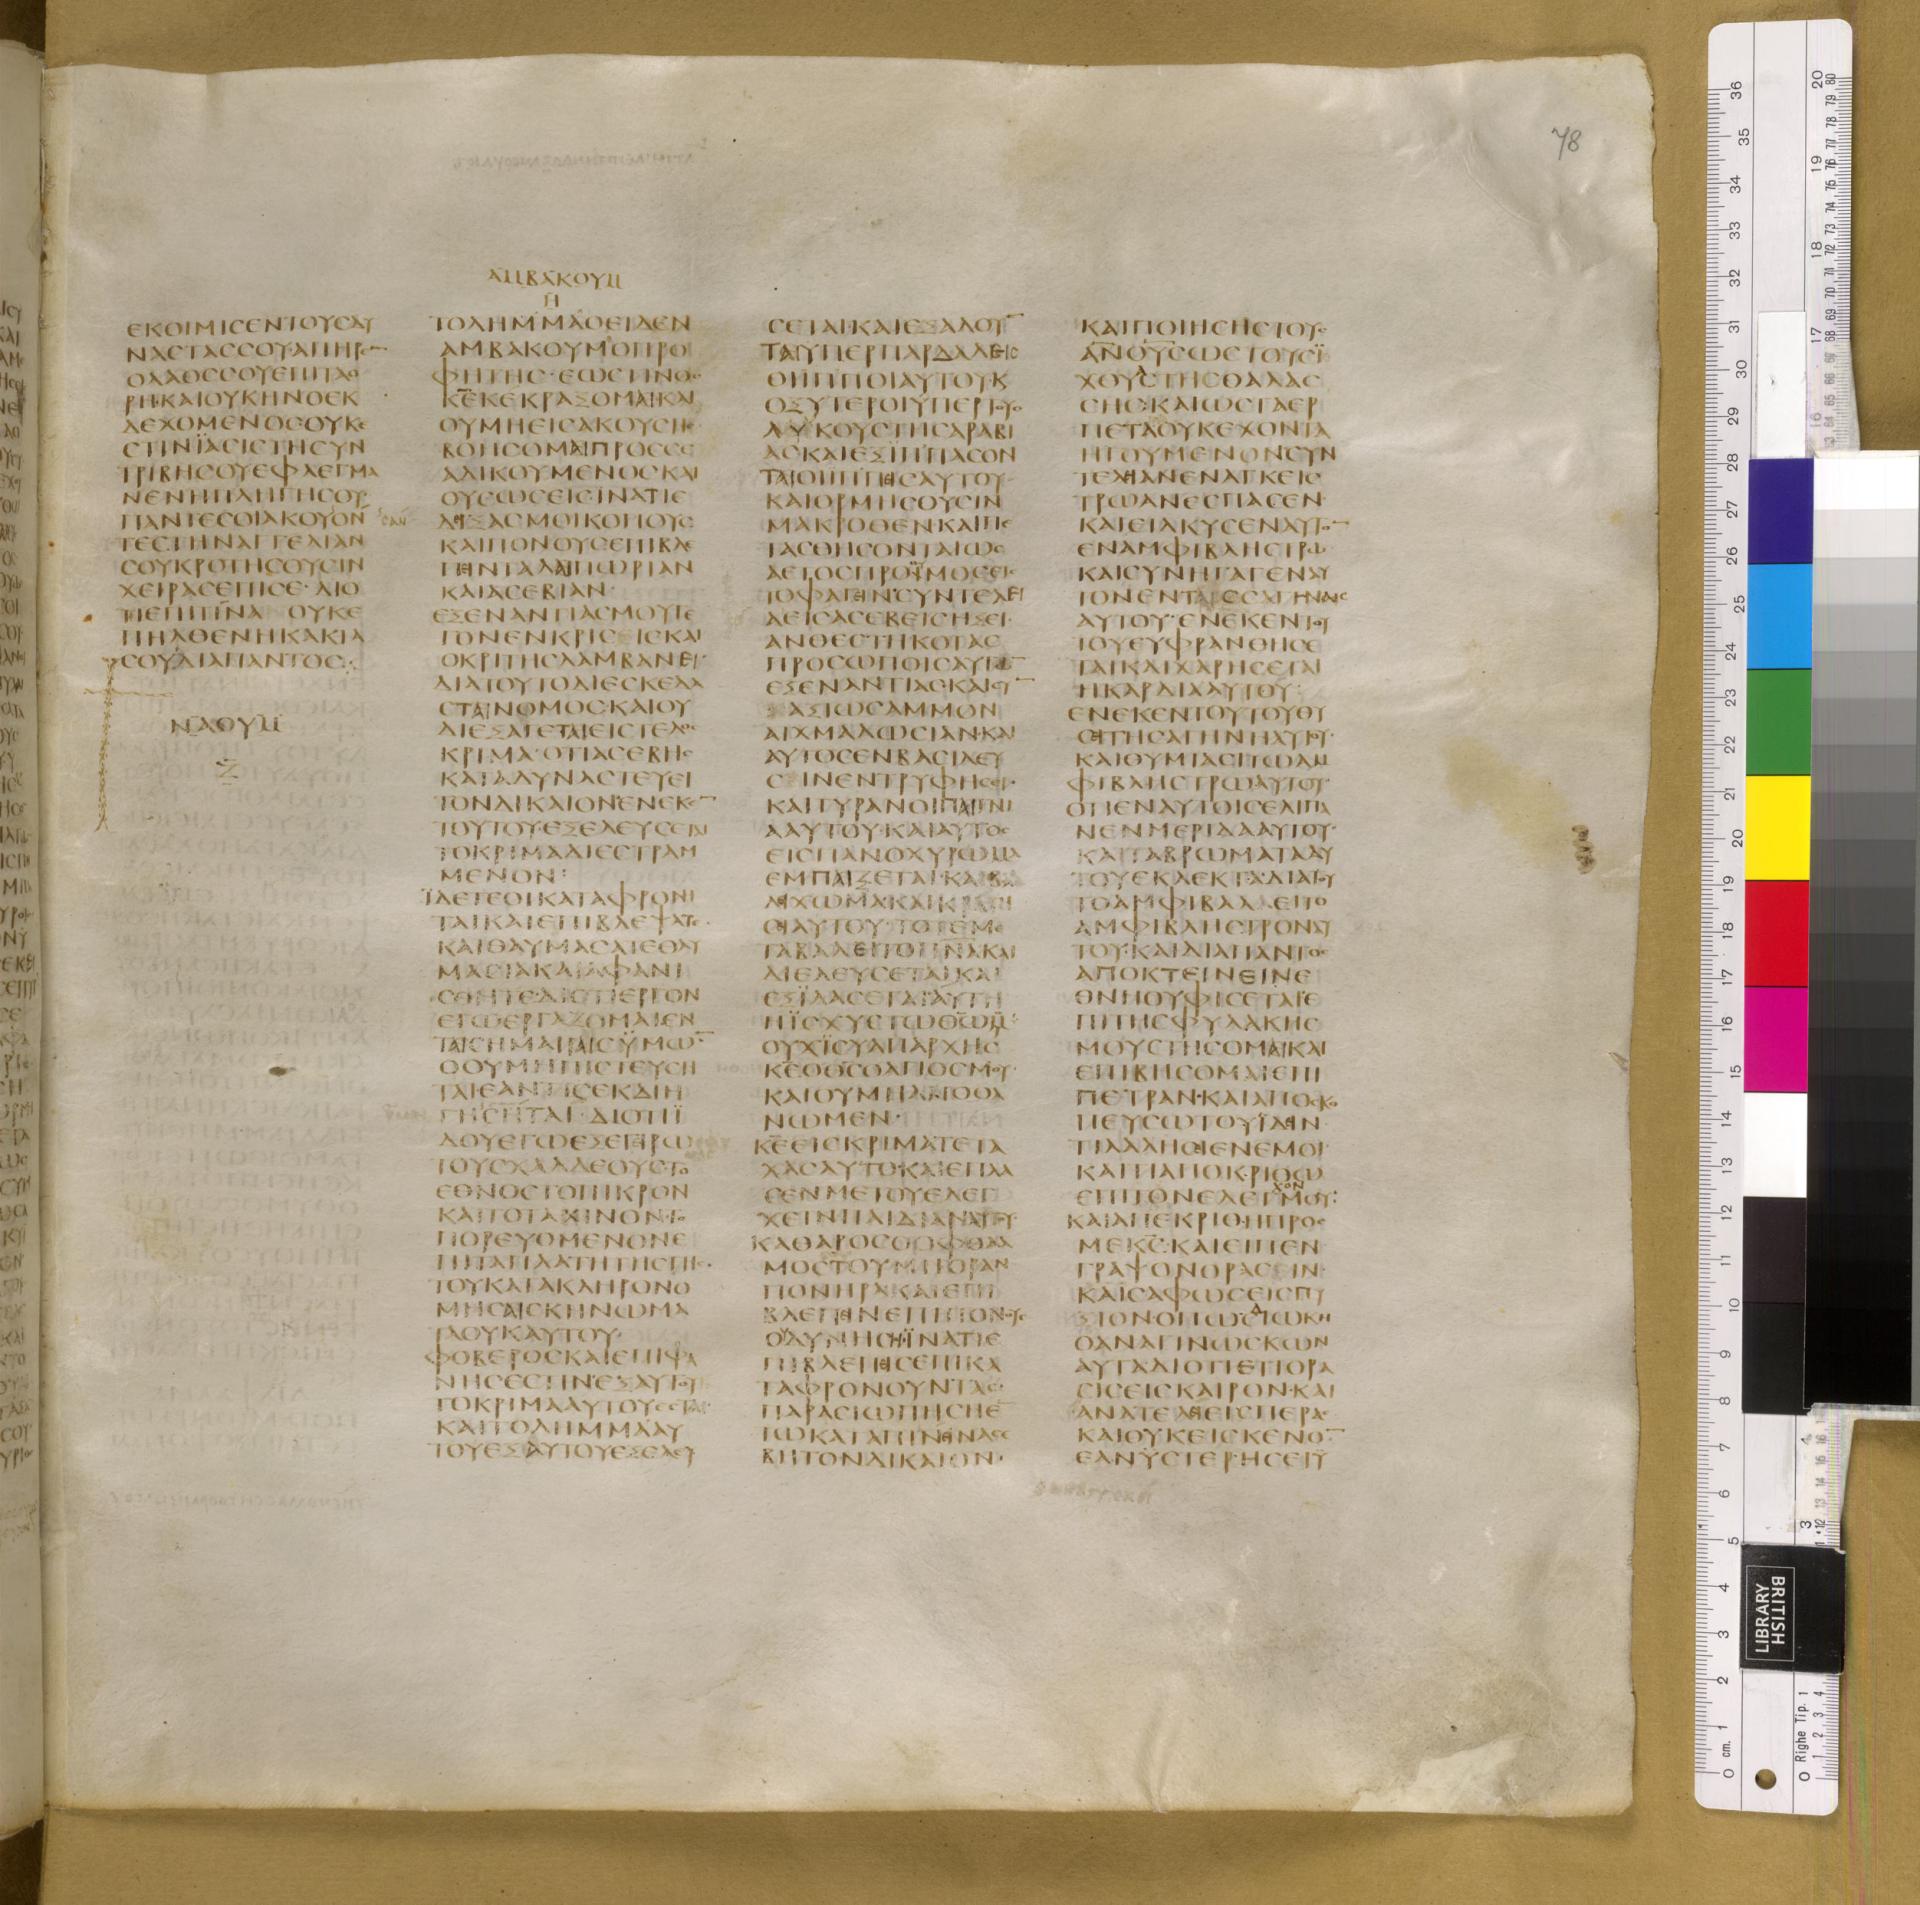 78
ΑΜΒΑΚΟΥΜ
Η
ΕΚΟΙΜΙϹΕΝΤΟΥϹΔΥ
ΝΑϹΤΑϹϹΟΥ·ΑΠΗΡΕ
ΟΛΑΟϹϹΟΥΕΠΙΤΑΟ
ΡΗ·ΚΑΙΟΥΚΗΝΟΕΚ
ΔΕΧΟΜΕΝΟϹΟΥΚΕ
ϹΤΙΝΪΑϹΙϹΤΗϹΥΝ
ΤΡΙΒΗϹΟΥΕΦΛΕΓΜΑ
ΝΕΝΗΠΛΗΓΗϹΟΥ
ΠΑΝΤΕϹΟΙΑΚΟΥΟΝ
ΤΕϹΤΗΝΑΓΓΕΛΙΑΝ
ϹΟΥΚΡΟΤΗϹΟΥϹΙΝ
ΧΕΙΡΑϹΕΠΙϹΕ·ΔΙΟ
ΤΙΕΠΙΤΙΝΑ ΟΥΚΕ
ΠΗΛΘΕΝΗΚΑΚΙΑ
ϹΟΥΔΙΑΠΑΝΤΟϹ:
ΝΑΟΥΜ
Ζ
ΤΟΛΗΜΜΑΟΕΙΔΕΝ
ΑΜΒΑΚΟΥΜΟΠΡΟ
ΦΗΤΗϹ·ΕΩϹΤΙΝΟϹ
ΚΕΚΕΚΡΑΞΟΜΑΙΚΑΙ
ΟΥΜΗΕΙϹΑΚΟΥϹΗϹ
ΒΟΗϹΟΜΑΙΠΡΟϹϹΕ
ΑΔΙΚΟΥΜΕΝΟϹΚΑΙ
ΟΥϹΩϹΕΙϹΙΝΑΤΙΕ
ΔΙΞΑϹΜΟΙΚΟΠΟΥϹ
ΚΑΙΠΟΝΟΥϹΕΠΙΒΛΕ
ΠΕΙΝΤΑΛΑΙΠΩΡΙΑΝ
ΚΑΙΑϹΕΒΙΑΝ·
ΕΞΕΝΑΝΤΙΑϹΜΟΥΓΕ
ΓΟΝΕΝΚΡΙϹΕΙϹΚΑΙ
ΟΚΡΙΤΗϹΛΑΜΒΑΝΕΙ·
ΔΙΑΤΟΥΤΟΔΙΕϹΚΕΔΑ
ϹΤΑΙΝΟΜΟϹΚΑΙΟΥ
ΔΙΕΞΑΓΕΤΑΙΕΙϹΤΕΛΟϹ
ΚΡΙΜΑ·ΟΤΙΑϹΕΒΗϹ
ΚΑΤΑΔΥΝΑϹΤΕΥΕΙ
ΤΟΝΔΙΚΑΙΟΝΕΝΕΚΕ
ΤΟΥΤΟΥ·ΕΞΕΛΕΥϹΕΤΑΙ
ΤΟΚΡΙΜΑΔΙΕϹΤΡΑΜ
ΜΕΝΟΝ:
ΪΔΕΤΕΟΙΚΑΤΑΦΡΟΝΗ
ΤΑΙΚΑΙΕΠΙΒΛΕΨΑΤΕ·
ΚΑΙΘΑΥΜΑϹΑΤΕΘΑΥ
ΜΑϹΙΑΚΑΙΑΦΑΝΙ
ϹΘΗΤΕΔΙΟΤΙΕΡΓΟΝ
ΕΓΩΕΡΓΑΖΟΜΑΙΕΝ
ΤΑΙϹΗΜΑΙΡΑΙϹΫΜΩ
ΟΟΥΜΗΠΙϹΤΕΥϹΗ
ΤΑΙΕΑΝΤΙϹΕΚΔΙΗ
ΓΗϹΗΤΑΙ·ΔΙΟΤΙΪ
ΔΟΥΕΓΩΕΞΕΓΕΙΡΩ
ΤΟΥϹΧΑΛΔΕΟΥϹΤΟ
ΕΘΝΟϹΤΟΠΙΚΡΟΝ
ΚΑΙΤΟΤΑΧΙΝΟΝ·ΤΟ
ΠΟΡΕΥΟΜΕΝΟΝΕ
ΠΙΤΑΠΛΑΤΗΤΗϹΓΗϹ·
ΤΟΥΚΑΤΑΚΛΗΡΟΝΟ
ΜΗϹΑΙϹΚΗΝΩΜΑ
ΤΑΟΥΚΑΥΤΟΥ·
ΦΟΒΕΡΟϹΚΑΙΕΠΙΦΑ
ΝΗϹΕϹΤΙΝΕΞΑΥΤΟΥ
ΤΟΚΡΙΜΑΑΥΤΟΥΕϹΤΑΙ·
ΚΑΙΤΟΛΗΜΜΑΑΥ
ΤΟΥΕΞΑΥΤΟΥΕΞΕΛΕΥ
ϹΕΤΑΙ·ΚΑΙΕΞΑΛΟΥ
ΤΑΙΥΠΕΡΠΑΡΔΑΛΕΙϹ
ΟΙΙΠΠΟΙΑΥΤΟΥ·Κ
ΟΞΥΤΕΡΟΙΥΠΕΡΤΟΥϹ
ΛΥΚΟΥϹΤΗϹΑΡΑΒΙ
ΑϹΚΑΙΕΞΙΠΠΑϹΟΝ
ΤΑΙΟΙΙΠΠΕΙϹΑΥΤΟΥ·
ΚΑΙΟΡΜΗϹΟΥϹΙΝ
ΜΑΚΡΟΘΕΝΚΑΙΠΕ
ΤΑϹΘΗϹΟΝΤΑΙΩϹ
ΑΕΤΟϹΠΡΟΪΜΟϹΕΙϹ
ΤΟΦΑΓΕΙΝϹΥΝΤΕΛΕΙ
ΑΕΙϹΑϹΕΒΕΙϹΗΞΕΙ·
ΑΝΘΕϹΤΗΚΟΤΑϹ
ΠΡΟϹΩΠΟΙϹΑΥΤΩ
ΕΞΕΝΑΝΤΙΑϹΚΑΙϹΥ
ΝΑΞΙΩϹΑΜΜΟΝ
ΑΙΧΜΑΛΩϹΙΑΝ·ΚΑΙ
ΑΥΤΟϹΕΝΒΑϹΙΛΕΥ
ϹΙΝΕΝΤΡΥΦΗϹΕΙ·
ΚΑΙΤΥΡΑΝΟΙΠΑΙΓΝΙ
ΑΑΥΤΟΥ·ΚΑΙΑΥΤΟϹ
ΕΙϹΠΑΝΟΧΥΡΩΜΑ
ΕΜΠΑΙΞΕΤΑΙ·ΚΑΙΒΑ
ΛΙΧΩΜΑΚΑΙΚΡΑΤΗ
ϹΙΑΥΤΟΥ·ΤΟΤΕΜΕ
ΤΑΒΑΛΕΙΤΟΠΝΑΚΑΙ
ΔΙΕΛΕΥϹΕΤΑΙΚΑΙ
ΕΞΙΛΑϹΕΤΑΙ·ΑΥΤΗ
ΗΪϹΧΥϹΤΩΘΩΜΟΥ:
ΟΥΧΪϹΥΑΠΑΡΧΗϹ
ΚΕΟΘϹΟΑΓΙΟϹΜΟΥ·
ΚΑΙΟΥΜΗΑΠΟΘΑ
ΝΩΜΕΝ·
ΚΕΕΙϹΚΡΙΜΑΤΕΤΑ
ΧΑϹΑΥΤΟ·ΚΑΙΕΠΛΑ
ϹΕΝΜΕΤΟΥΕΛΕΓ
ΧΕΙΝΠΑΙΔΙΑΝΑΥΤΟΥ
ΚΑΘΑΡΟϹΟΟΦΘΑΛ
ΜΟϹΤΟΥΜΗΟΡΑΝ
ΠΟΝΗΡΑΚΑΙΕΠΙ
ΒΛΕΠΕΙΝΕΠΙΠΟΝΟΥϹ
ΟΔΥΝΗϹ·ΪΝΑΤΙΕ
ΠΙΒΛΕΠΕΙϹΕΠΙΚΑ
ΤΑΦΡΟΝΟΥΝΤΑϹ·
ΠΑΡΑϹΙΩΠΗϹΗΕ
ΤΩΚΑΤΑΠΙΝΕΙΝΑϹΕ
ΒΗΤΟΝΔΙΚΑΙΟΝ·
ΚΑΙΠΟΙΗϹΗϹΤΟΥϹ
ΑΝΟΥϹΩϹΤΟΥϹΪ
ΧΘΥΑϹΤΗϹΘΑΛΑϹ
ϹΗϹ·ΚΑΙΩϹΤΑΕΡ
ΠΕΤΑΟΥΚΕΧΟΝΤΑ
ΗΓΟΥΜΕΝΟΝϹΥΝ
ΤΕΛΙΑΝΕΝΑΓΚΕΙϹ
ΤΡΩΑΝΕϹΠΑϹΕΝ·
ΚΑΙΕΙΛΚΥϹΕΝΑΥΤΟ
ΕΝΑΜΦΙΒΛΗϹΤΡΩ·
ΚΑΙϹΥΝΗΓΑΓΕΝΑΥ
ΤΟΝΕΝΤΑΙϹϹΑΓΗΝΑΙϹ
ΑΥΤΟΥ·ΕΝΕΚΕΝΤΟΥ
ΤΟΥΕΥΦΡΑΝΘΗϹΕ
ΤΑΙΚΑΙΧΑΡΗϹΕΤΑΙ
ΗΚΑΡΔΙΑΑΥΤΟΥ:
ΕΝΕΚΕΝΤΟΥΤΟΥΘΥ
ϹΕΙΤΗϹΑΓΗΝΗΑΥΤΟΥ·
ΚΑΙΘΥΜΙΑϹΙΤΩΑΜ
ΦΙΒΛΗϹΤΡΩΑΥΤΟΥ·
ΟΤΙΕΝΑΥΤΟΙϹΕΛΙΠΑ
ΝΕΝΜΕΡΙΔΑΑΥΤΟΥ·
ΚΑΙΤΑΒΡΩΜΑΤΑΑΥ
ΤΟΥΕΚΛΕΚΤΑ·ΔΙΑΤΟΥ
ΤΟΑΜΦΙΒΑΛΕΙΤΟ
ΑΜΦΙΒΛΗϹΤΡΟΝΑΥ
ΤΟΥ·ΚΑΙΔΙΑΠΑΝΤΟϹ
ΑΠΟΚΤΕΙΝΕΙΝΕ
ΘΝΗΟΥΦΙϹΕΤΑΙ·Ε
ΠΙΤΗϹΦΥΛΑΚΗϹ
ΜΟΥϹΤΗϹΟΜΑΙΚΑΙ
ΕΠΙΒΗϹΟΜΑΙΕΠΙ
ΠΕΤΡΑΝ·ΚΑΙΑΠΟϹΚΟ
ΠΕΥϹΩΤΟΥΪΔΙΝ
ΤΙΛΑΛΗϹΙΕΝΕΜΟΙ·
ΚΑΙΤΙΑΠΟΚΡΙΘΩ
ΕΠΙΤΟΝΕΛΕΓΧΟΝΜΟΥ:
ΚΑΙΑΠΕΚΡΙΘΗΠΡΟϹ
ΜΕΚϹ·ΚΑΙΕΙΠΕΝ
ΓΡΑΨΟΝΟΡΑϹΕΙΝ·
ΚΑΙϹΑΦΩϹΕΙϹΠΥ
ΞΙΟΝΟΠΩϹΔΙΩΚΗ
ΟΑΝΑΓΙΝΩϹΚΩΝ
ΑΥΤΑΔΙΟΤΙΕΤΙΟΡΑ
ϹΙϹΕΙϹΚΑΙΡΟΝ·ΚΑΙ
ΑΝΑΤΕΛΕΙΕΙϹΠΕΡΑϹ
ΚΑΙΟΥΚΕΙϹΚΕΝΟ
ΕΑΝΫϹΤΕΡΗϹΕΙΫ
BRITISH
LIBRARY